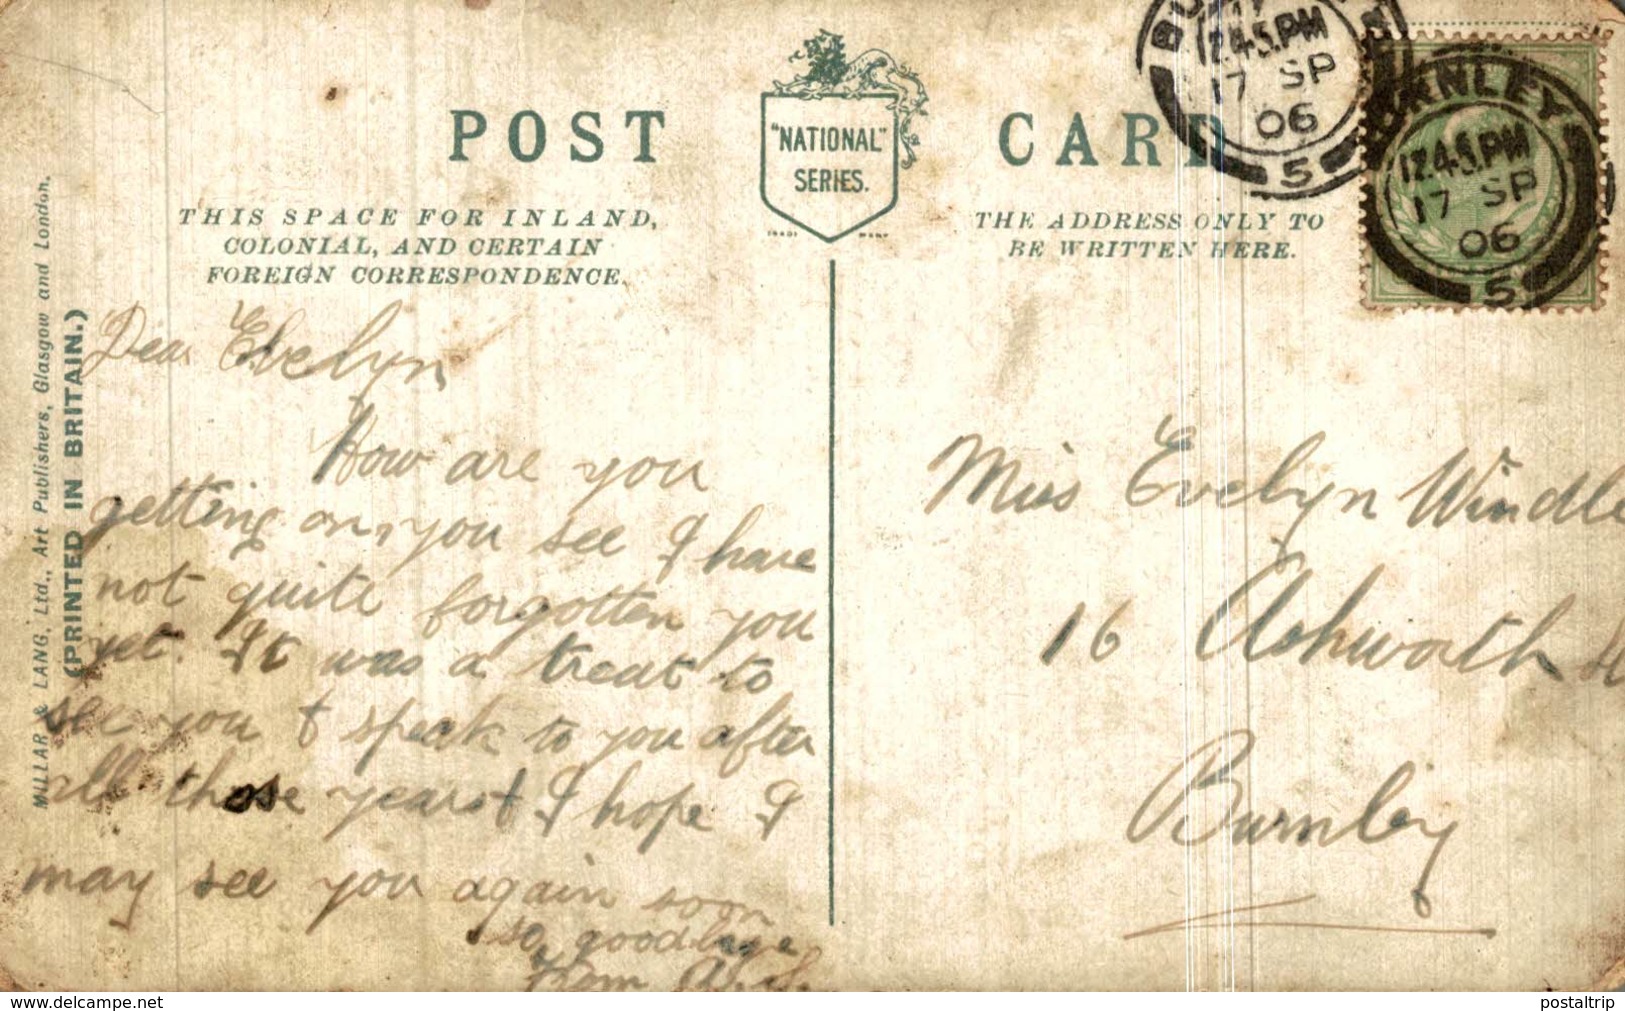 POST CARD
"NATIONAL"
SERIES.
TRADE MARK
THIS SPACE FOR INLAND,
COLONIAL, AND CERTAIN
FOREIGN CORRESPONDENCE.
THE ADDRESS ONLY TO
BE WRITTEN HERE.
MILLAR & LANG, Ltd., Art Publishers, Glasgow and London.
(PRINTED IN BRITAIN.)
Dear Evelyn
How are you
getting on, you see I have
not quite forgotten you
yet. It was a treat to
see you & speak to you after
all those years & I hope I
may see you again soon
so goodbye
from
Miss Evelyn Windle
16 Ashworth
Burnley
12.45.PM
17 SP
06
5
BURNLEY
12.45.PM
17 SP
06
5
delcampe.net
postaltrip